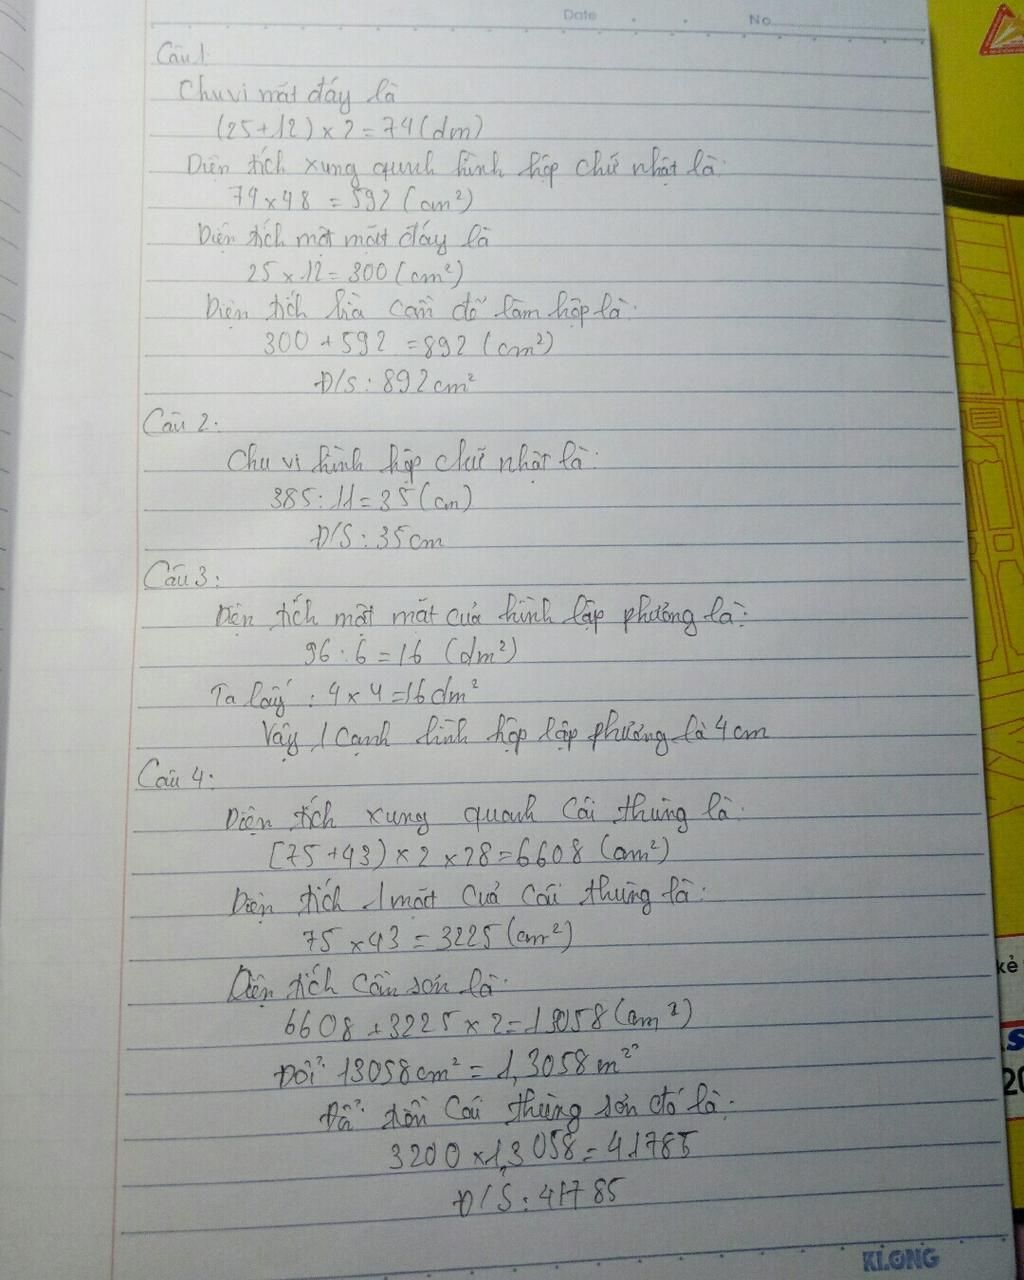 Date No
Câu 1:
Chu vi mặt đáy là
(25+12) x 2 = 74 (dm)
Diện tích xung quanh hình hộp chữ nhật là:
74 x 48 = 592 (cm²)
Diện tích một mặt đáy là
25 x 12 = 300 (cm²)
Diện tích bìa cần để làm hộp là:
300 + 592 = 892 (cm²)
Đ/S: 892 cm²
Câu 2:
Chu vi hình hộp chữ nhật là:
385 : 11 = 35 (cm)
Đ/S: 35 cm
Câu 3:
Diện tích một mặt của hình lập phương là:
96 : 6 = 16 (dm²)
Ta lấy: 4 x 4 = 16 dm²
Vậy 1 cạnh hình hộp lập phương là 4 cm
Câu 4:
Diện tích xung quanh cái thùng là:
(75 + 43) x 2 x 28 = 6608 (cm²)
Diện tích 1 mặt của cái thùng là:
75 x 43 = 3225 (cm²)
Diện tích cần sơn là:
6608 + 3225 x 2 = 13058 (cm²)
Đổi 13058 cm² = 1,3058 m²
Để sơn cái thùng sơn đó là:
3200 x 1,3058 = 41785
Đ/S: 41785
KLONG
kẻ